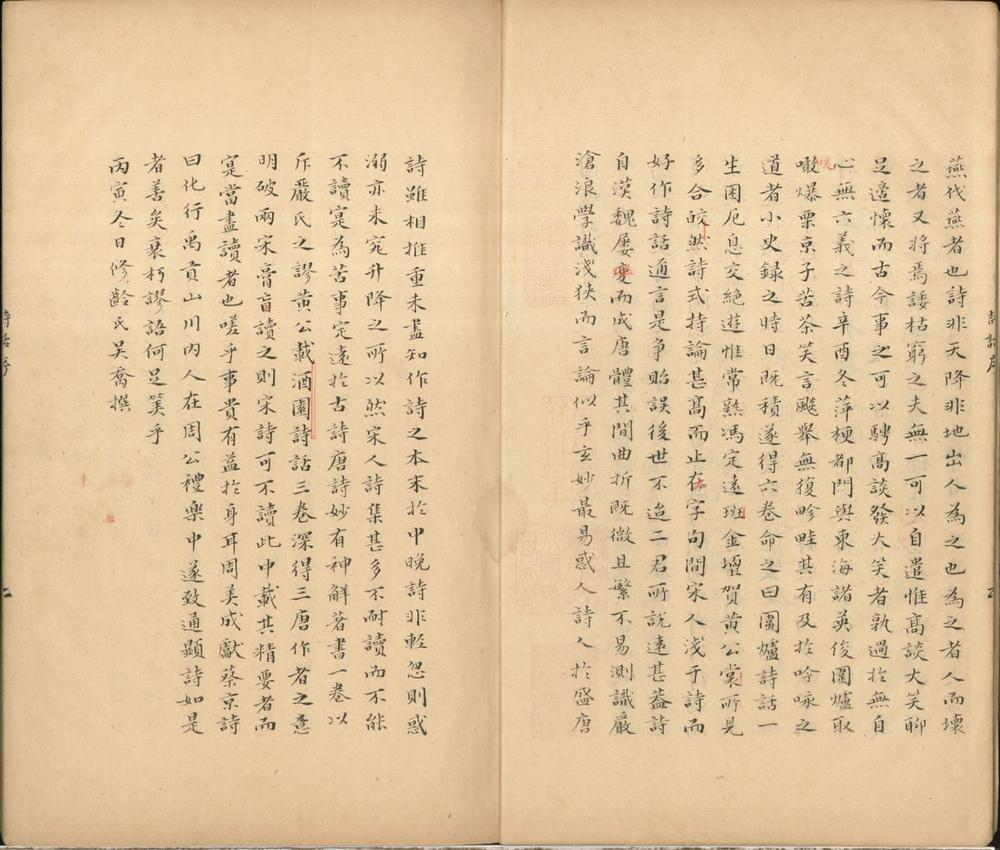 燕伐燕者也詩非天降非地出人為之也為之者人而壞
之者又將焉諉枯窮之夫無一可以自遣惟高談大笑聊
足遣懷而古今事之可以騁高談發大笑者孰過於無自
心無六義之詩辛酉冬萍梗都門與東海諸英俊圍爐取
暖
噉爆栗烹子苦茶笑言飈舉無復畛畦其有及於吟咏之
道者小史錄之時日既積遂得六卷命之曰圍爐詩話一
生困厄息交絕遊惟常熟馮定遠班金壇賀黃公裳所見
多合皎然詩式持論甚高而止在字句間宋人淺于詩而
好作詩話邇言是爭貽誤後世不迨二君所說遠甚葢詩
自漢魏屢變而成唐體其間曲折既微且繁不易測識嚴
滄浪學識淺狹而言論似乎玄妙最易惑人詩人於盛唐
詩雖相推重未盡知作詩之本末於中晚詩非輕忽則惑
溺亦未究升降之所以然宋人詩集甚多不耐讀而不能
不讀寔為苦事定遠於古詩唐詩妙有神解著書一卷以
斥嚴氏之謬黃公載酒園詩話三卷深得三唐作者之意
明破兩宋膏盲讀之則宋詩可不讀此中載其精要者而
寔當盡讀者也嗟乎事貴有益於身耳周美成獻蔡京詩
曰化行禹貢山川內人在周公禮樂中遂致通顯詩如是
者善矣衰朽謬語何足筭乎
丙寅冬日修齡氏吳喬撰